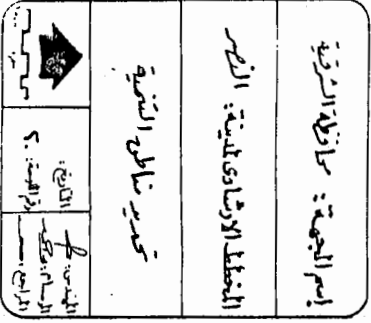 إسم الجهة : محافظة الشرقية
المخطط الارشادى لمدينة : النصر
تحديد مناطق التنمية
التاريخ :
رقم اللوحة : ٢
المهندس :
الرسام :
المراجع :